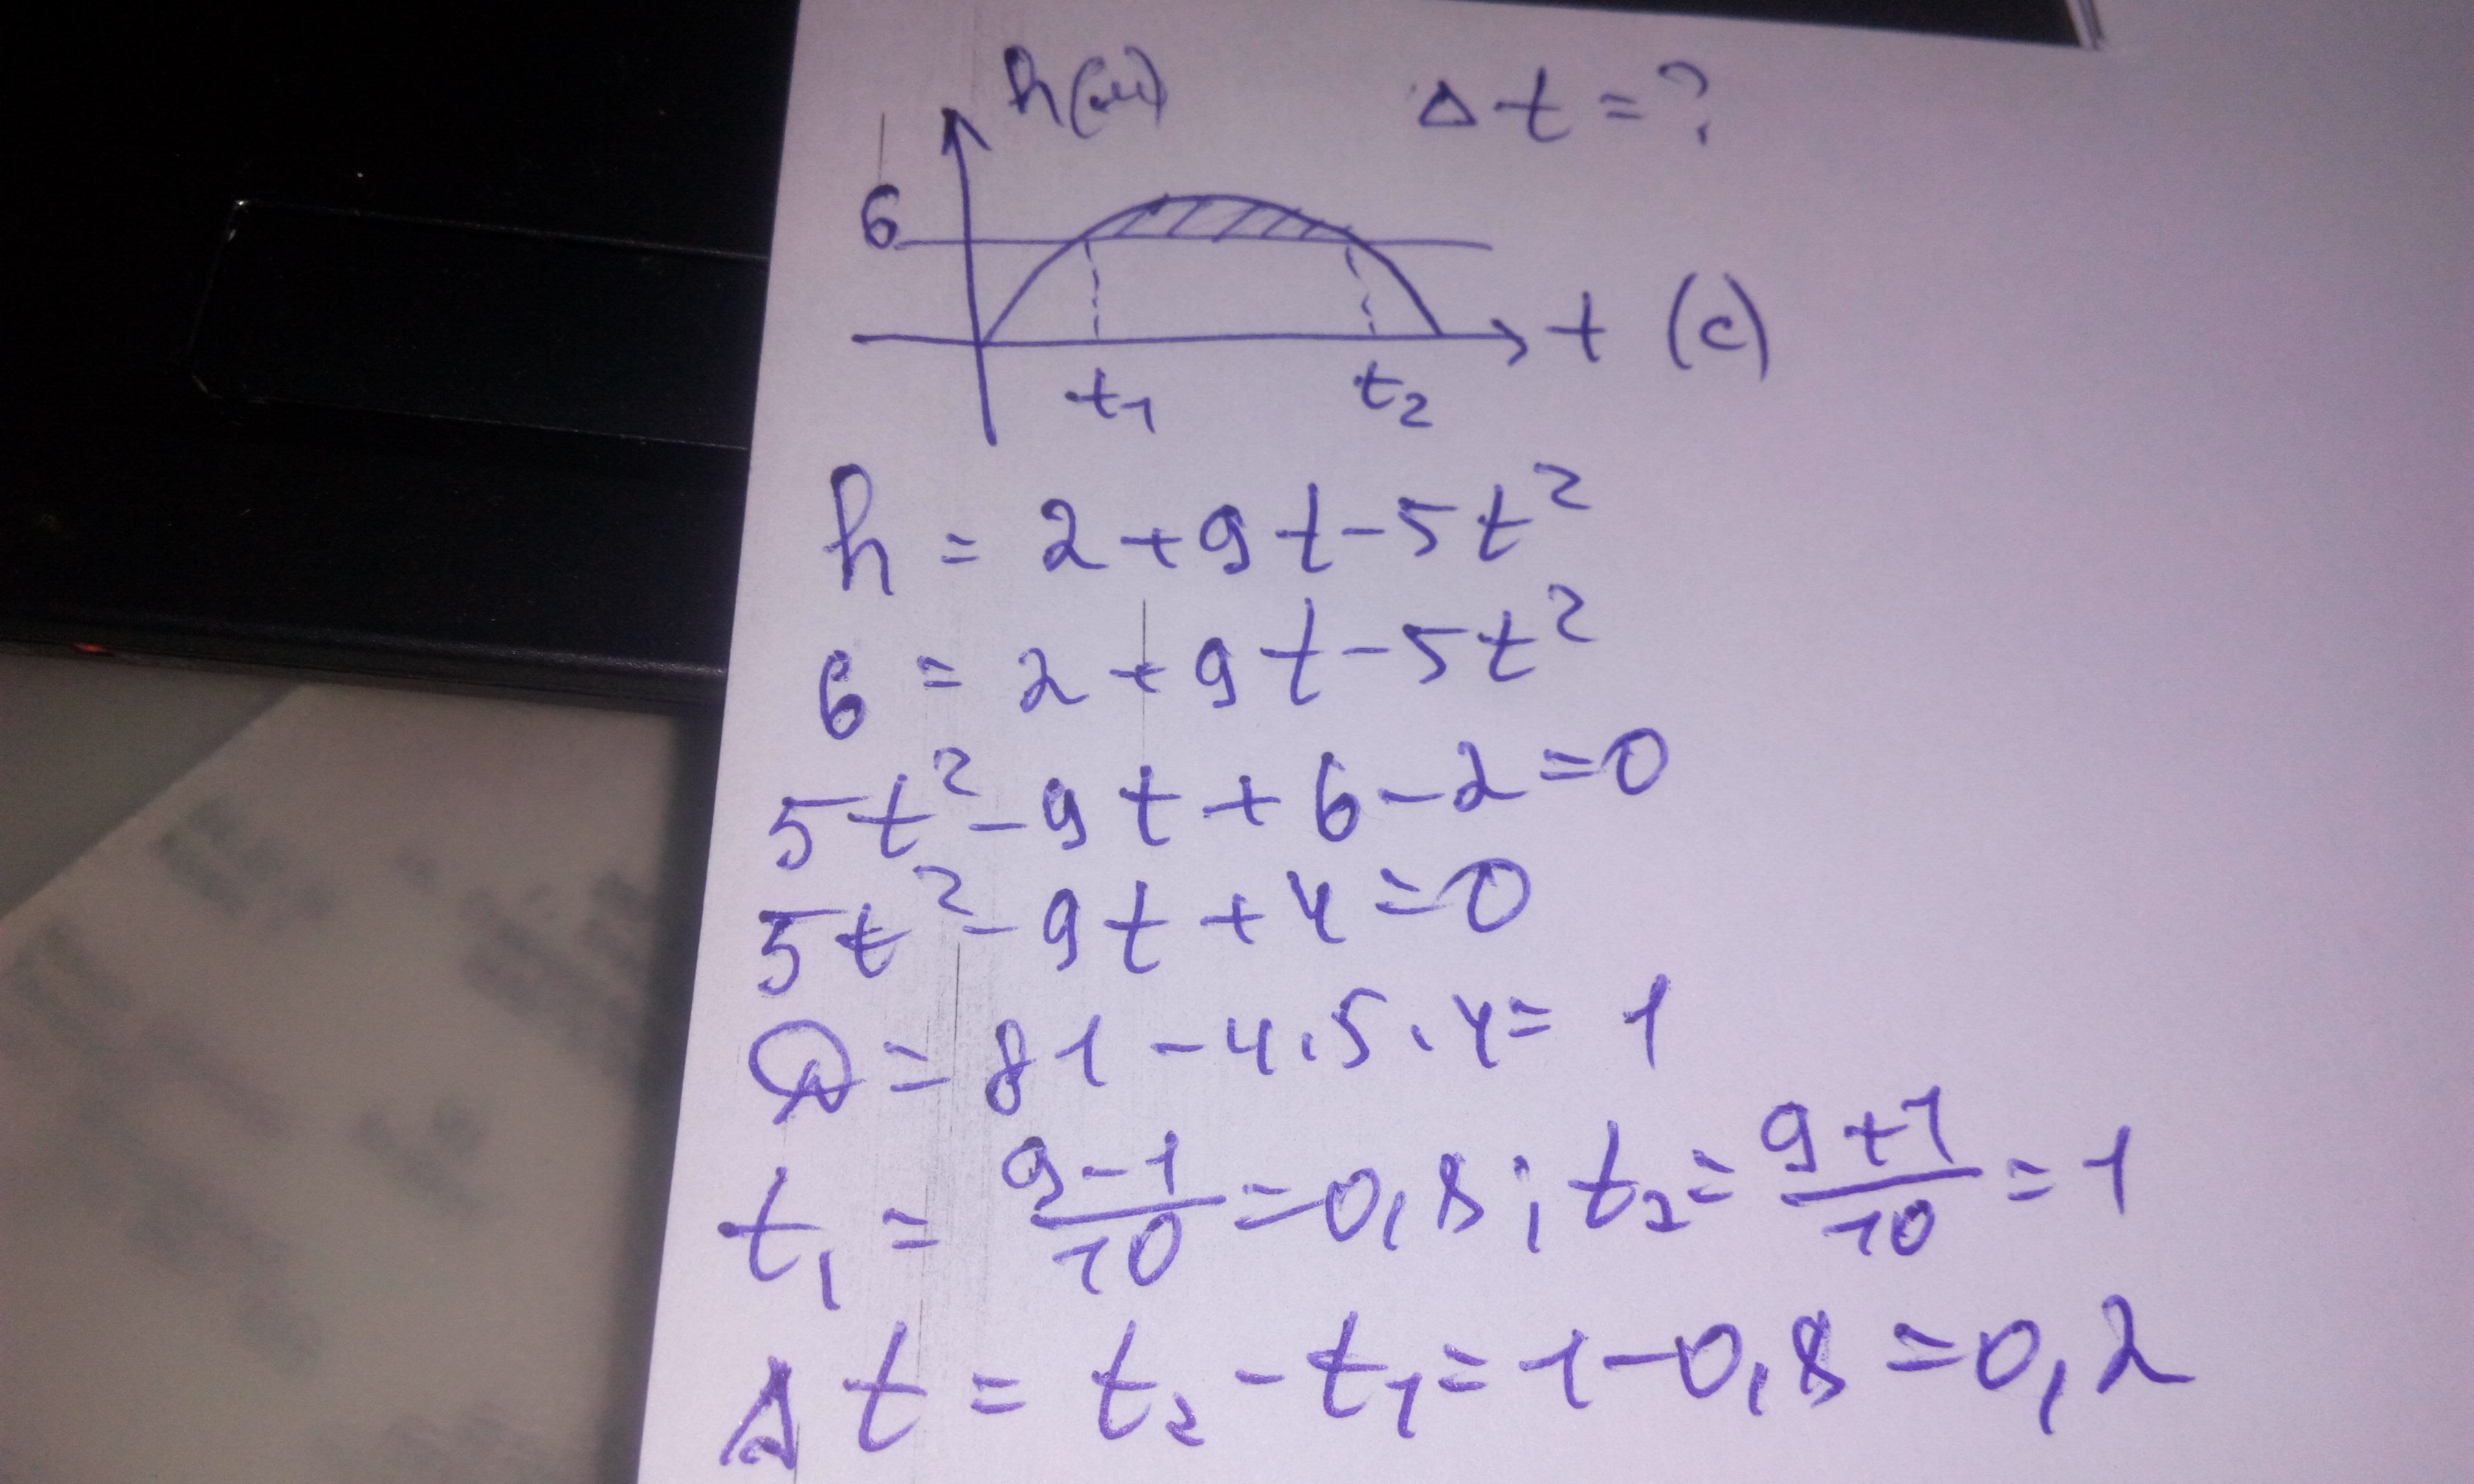 h(м) Δt=?
6
t (c)
t₁ t₂
h = 2+9t-5t²
6 = 2+9t-5t²
5t²-9t+6-2=0
5t²-9t+4=0
D=81-4·5·4=1
t₁=(9-1)/10=0,8; t₂=(9+1)/10=1
Δt=t₂-t₁=1-0,8=0,2